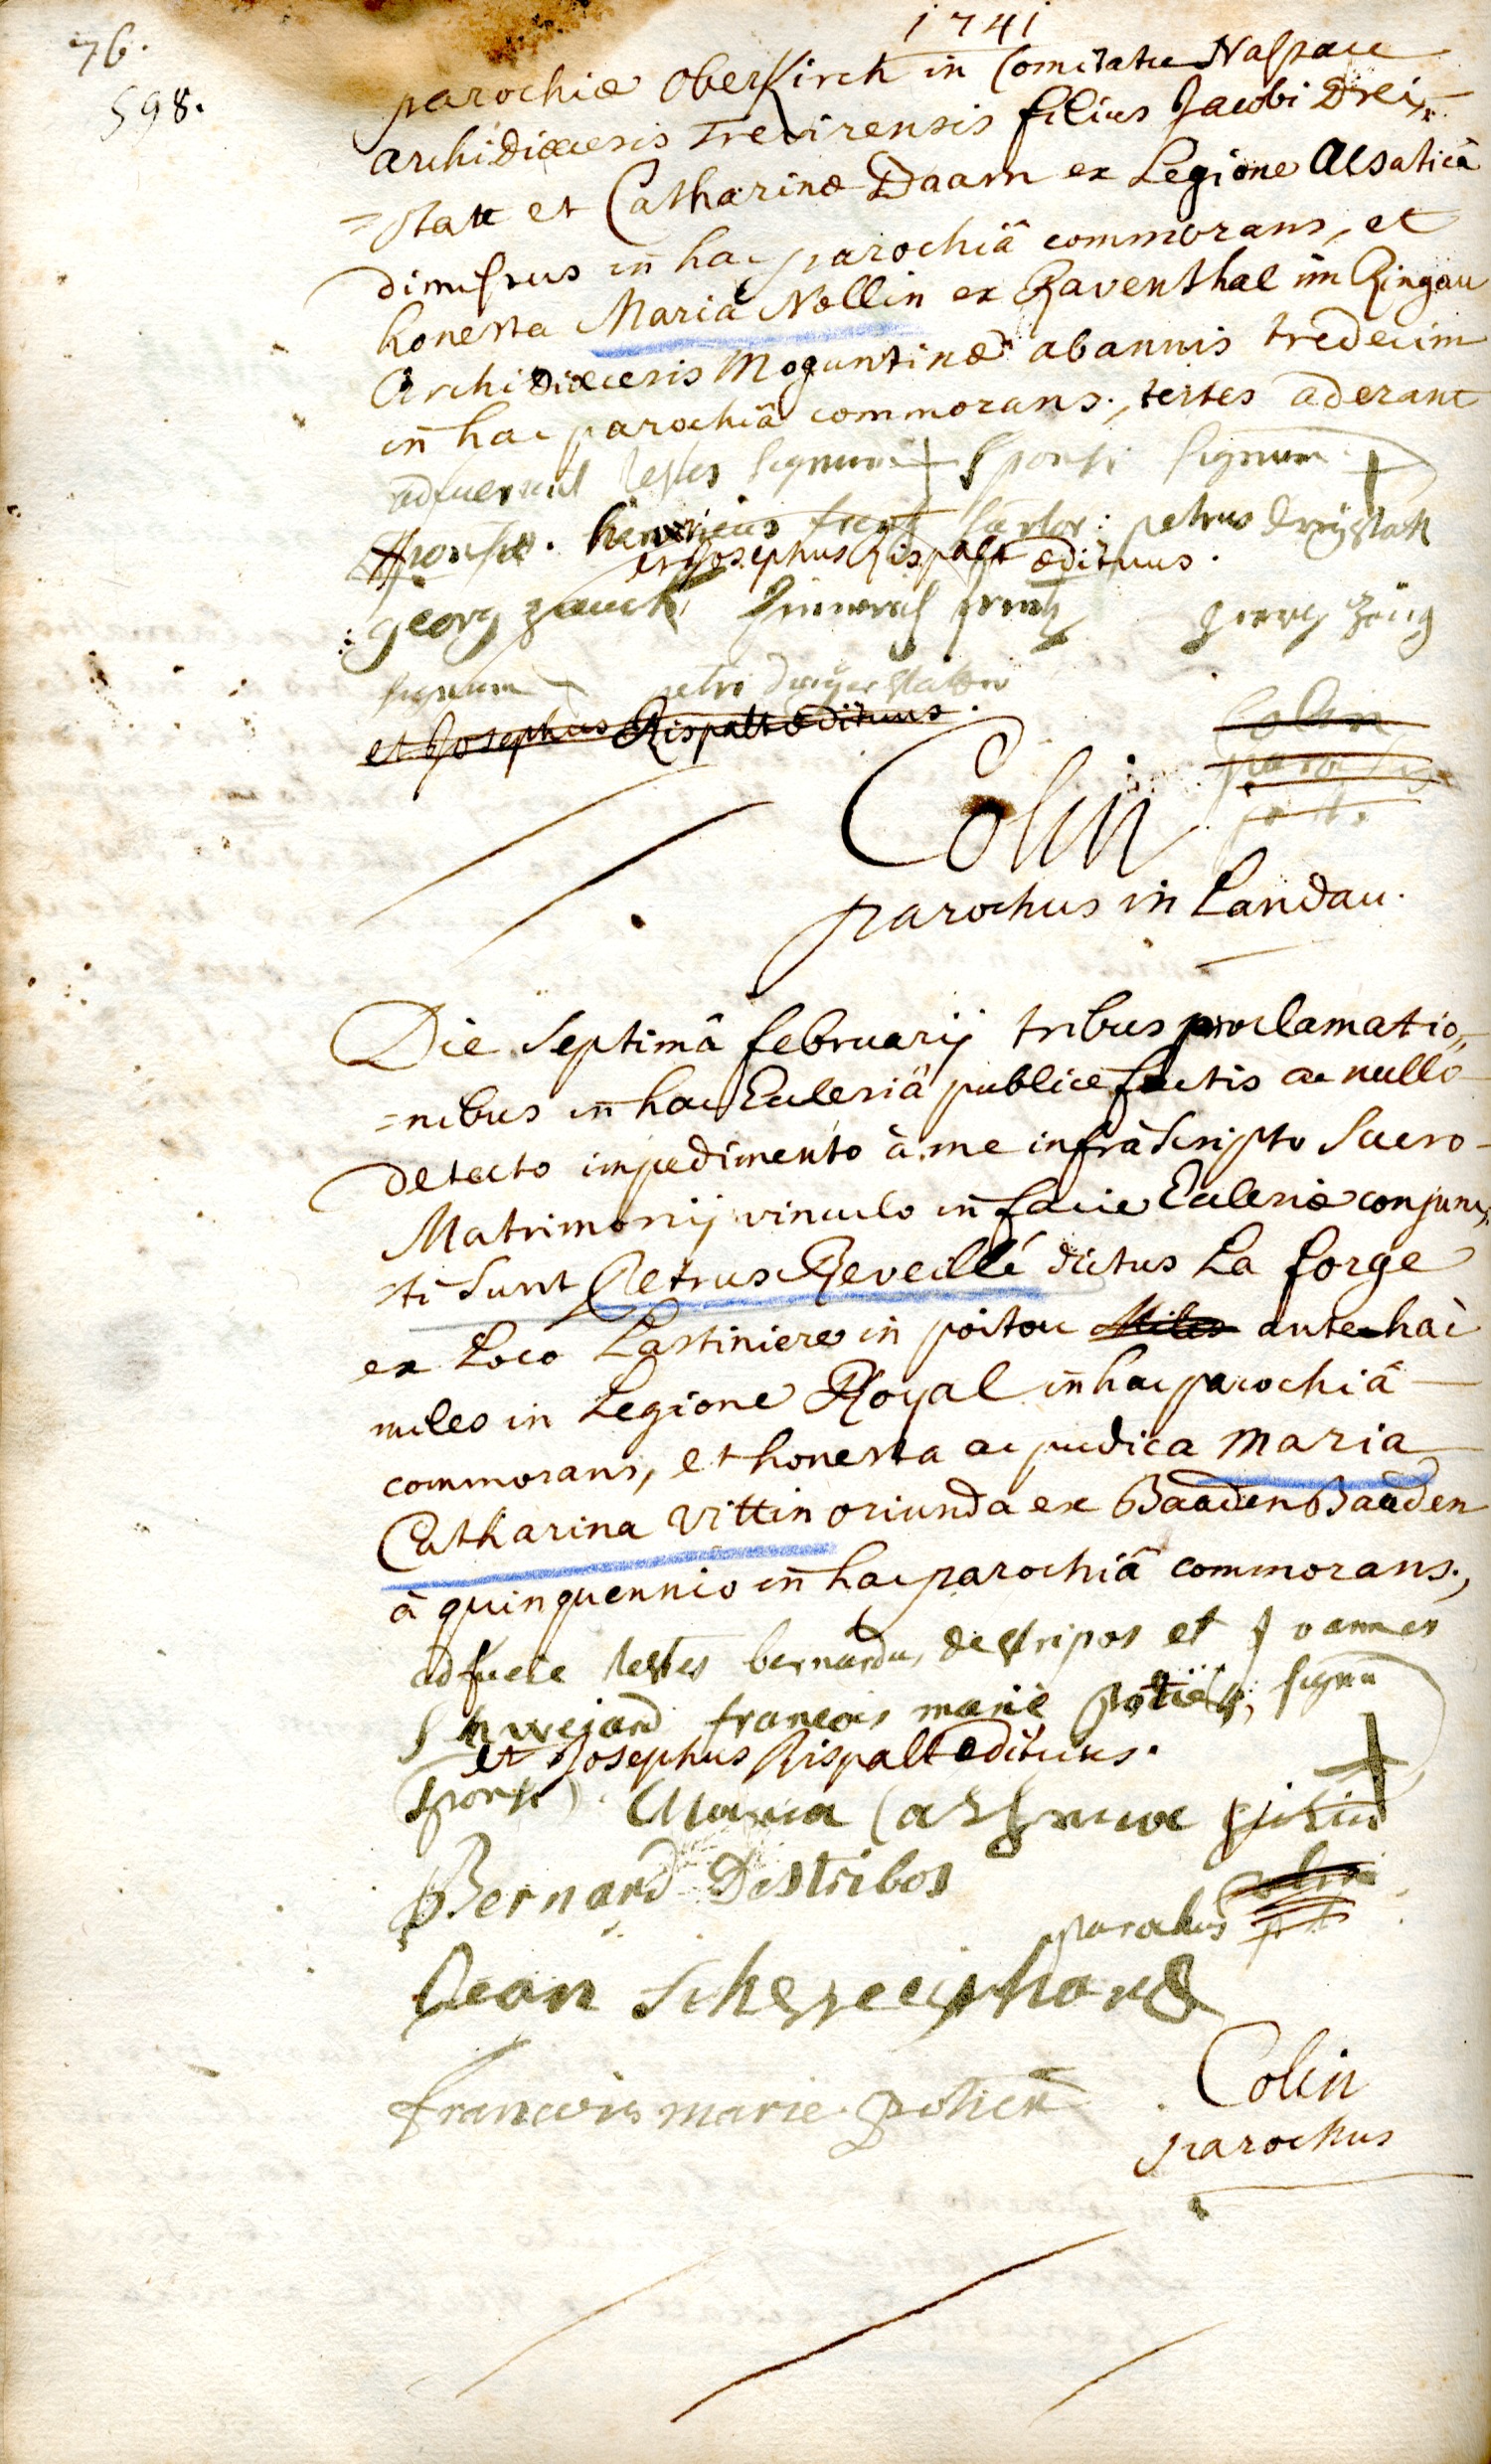 1741
76.
598.
parochiæ Oberkirch in Comitatu Nassau
archidiœcesis Trevirensis filius Jacobi Drei-
=statt et Catharinæ Daam ex Legione Alsaticâ
dimissus in hac parochiâ commorans, et
honesta Maria Nollin ex Raventhal im Ringau
Archidiœcesis Moguntinæ ab annis tredecim
in hac parochiâ commorans., testes aderant
adfuerunt testes signum + sponsi signum +
sponsæ. henricus frentz sartor: petrus dreystatt
et Josephus Rispalt ædituus.
georg zauck frentz georg
signum petri
et Josephus Rispalt ædituus.
Colin
Colin
parochus in Landau.
Die Septimâ februarij tribus proclamatio,,
=nibus in hac Ecclesiâ publice factis ac nullo
detecto impedimento à me infrà scripto Sacro
Matrimonij vinculo in facie Ecclesiæ conjunc,,
ti sunt Petrus Reveillé dictus La forge
ex Loco Lastiniere in poitou Miles ante hac
miles in Legione Royal in hac parochiâ
commorans, et honesta ac pudica Maria
Catharina Vittin oriunda ex Baaden Baaden
à quinquennio in hac parochiâ commorans.,
adfuere testes bernardus destripos et Joannes
Schwejard francois marie potier, signū
et Josephus Rispalt ædituus.
sponsi) +
Maria Catharina
Bernard Destribos
parochus
Jean
francois marie potier
Colin
parochus